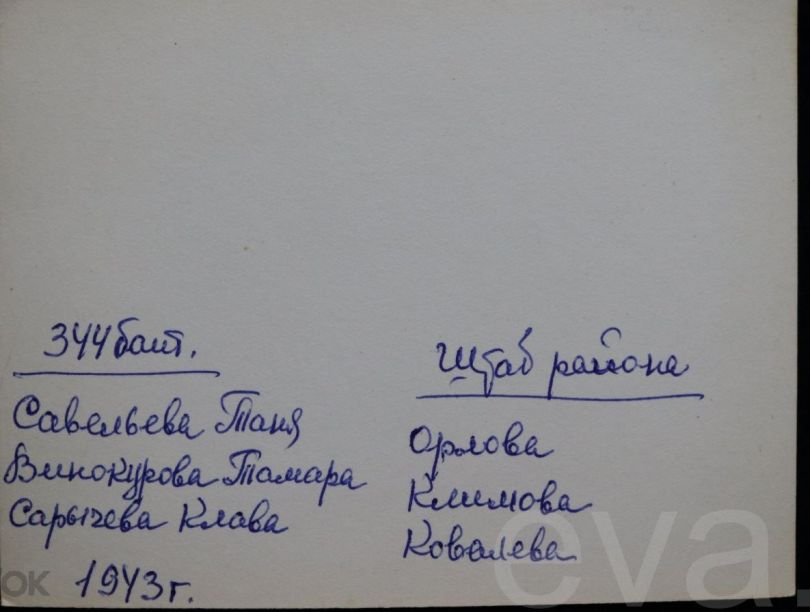 344 бат.
Савельева Таня
Винокурова Тамара
Сарычева Клава
1943 г.
Штаб района
Орлова
Климова
Ковалева
eva.
ок